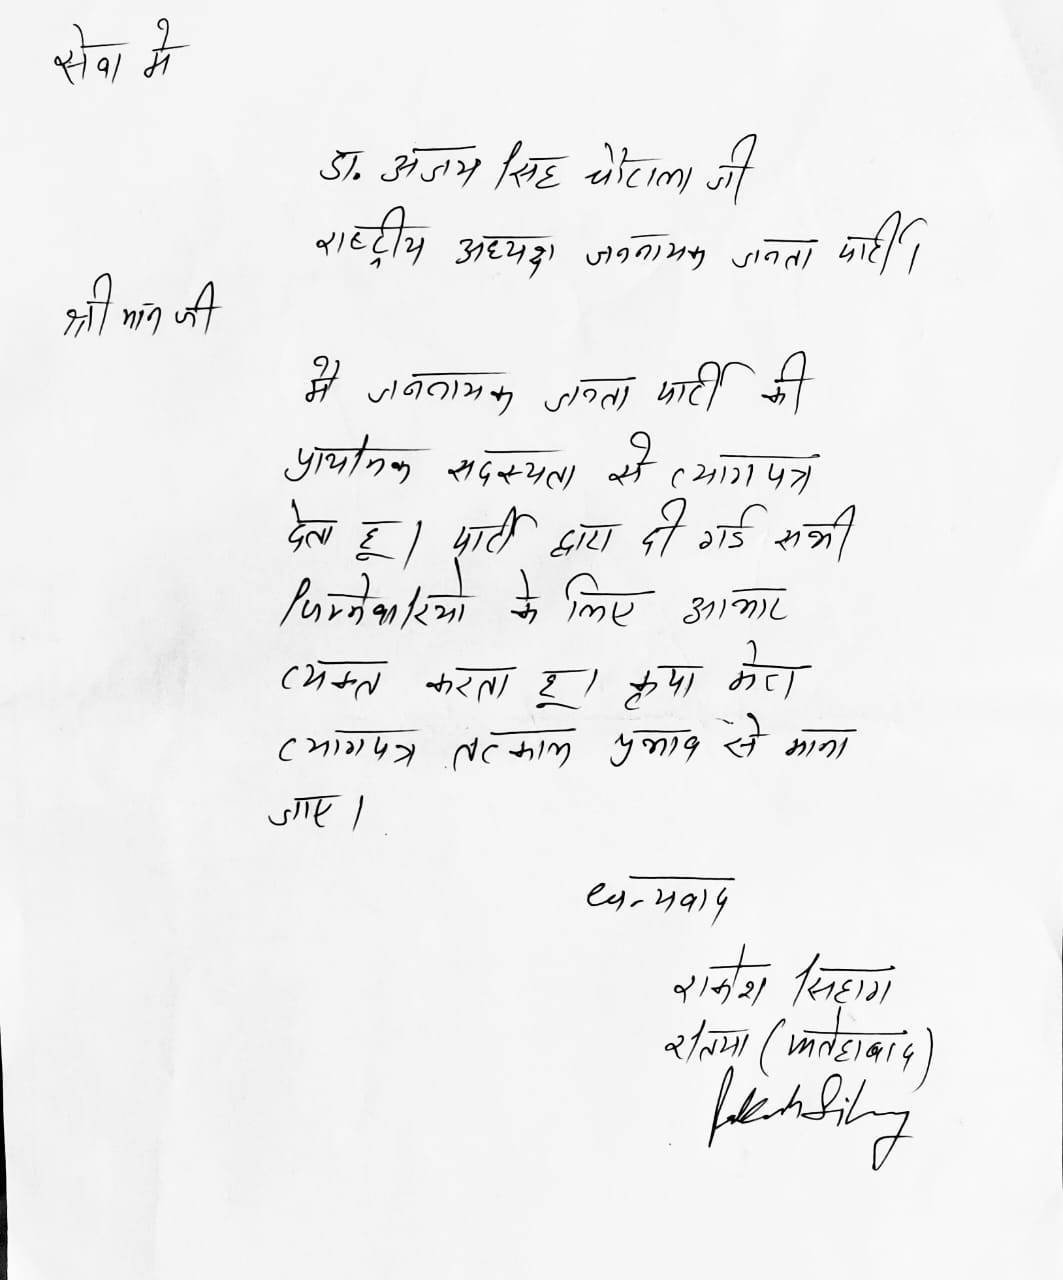 सेवा मे
डा. अजय सिंह चौटाला जी
राष्ट्रीय अध्यक्ष जननायक जनता पार्टी।
श्री मान जी
मै जननायक जनता पार्टी की
प्राथमिक सदस्यता से त्यागपत्र
देता हू। पार्टी द्वारा दी गई सभी
जिम्मेवारियो के लिए आभार
व्यक्त करता हू। कृपा मेरा
त्यागपत्र तत्काल प्रभाव से माना
जाए।
धन्यवाद
राकेश सिहाग
रतिया (फतेहाबाद)
Rakesh Sihag